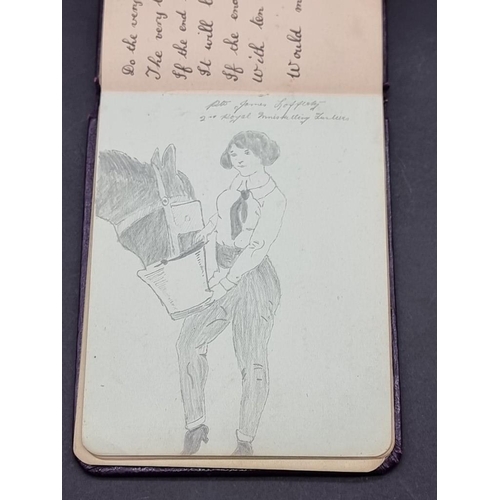 Do the very
The very b
If the end
It will b
If the eno
With ten
Would m
Pte James
2nd Royal Inniskilling Fusiliers